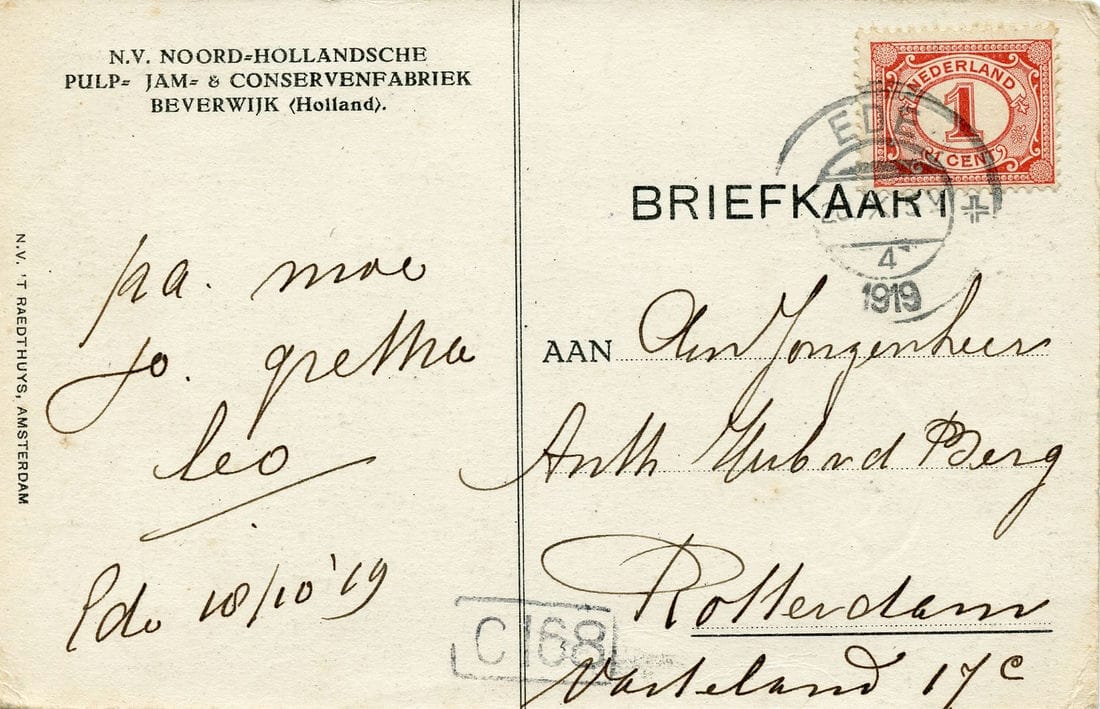 N.V. NOORD=HOLLANDSCHE
PULP= JAM= & CONSERVENFABRIEK
BEVERWIJK (Holland).
N.V. 'T RAEDTHUYS, AMSTERDAM
pa. moe
Jo. gretha
Leo
Ede 18/10 '19
NEDERLAND
1
1 CENT
EDE
4
1919
BRIEFKAART
AAN Jongenheer
Anth v d Berg
Rotterdam
Vasteland 17c
C168